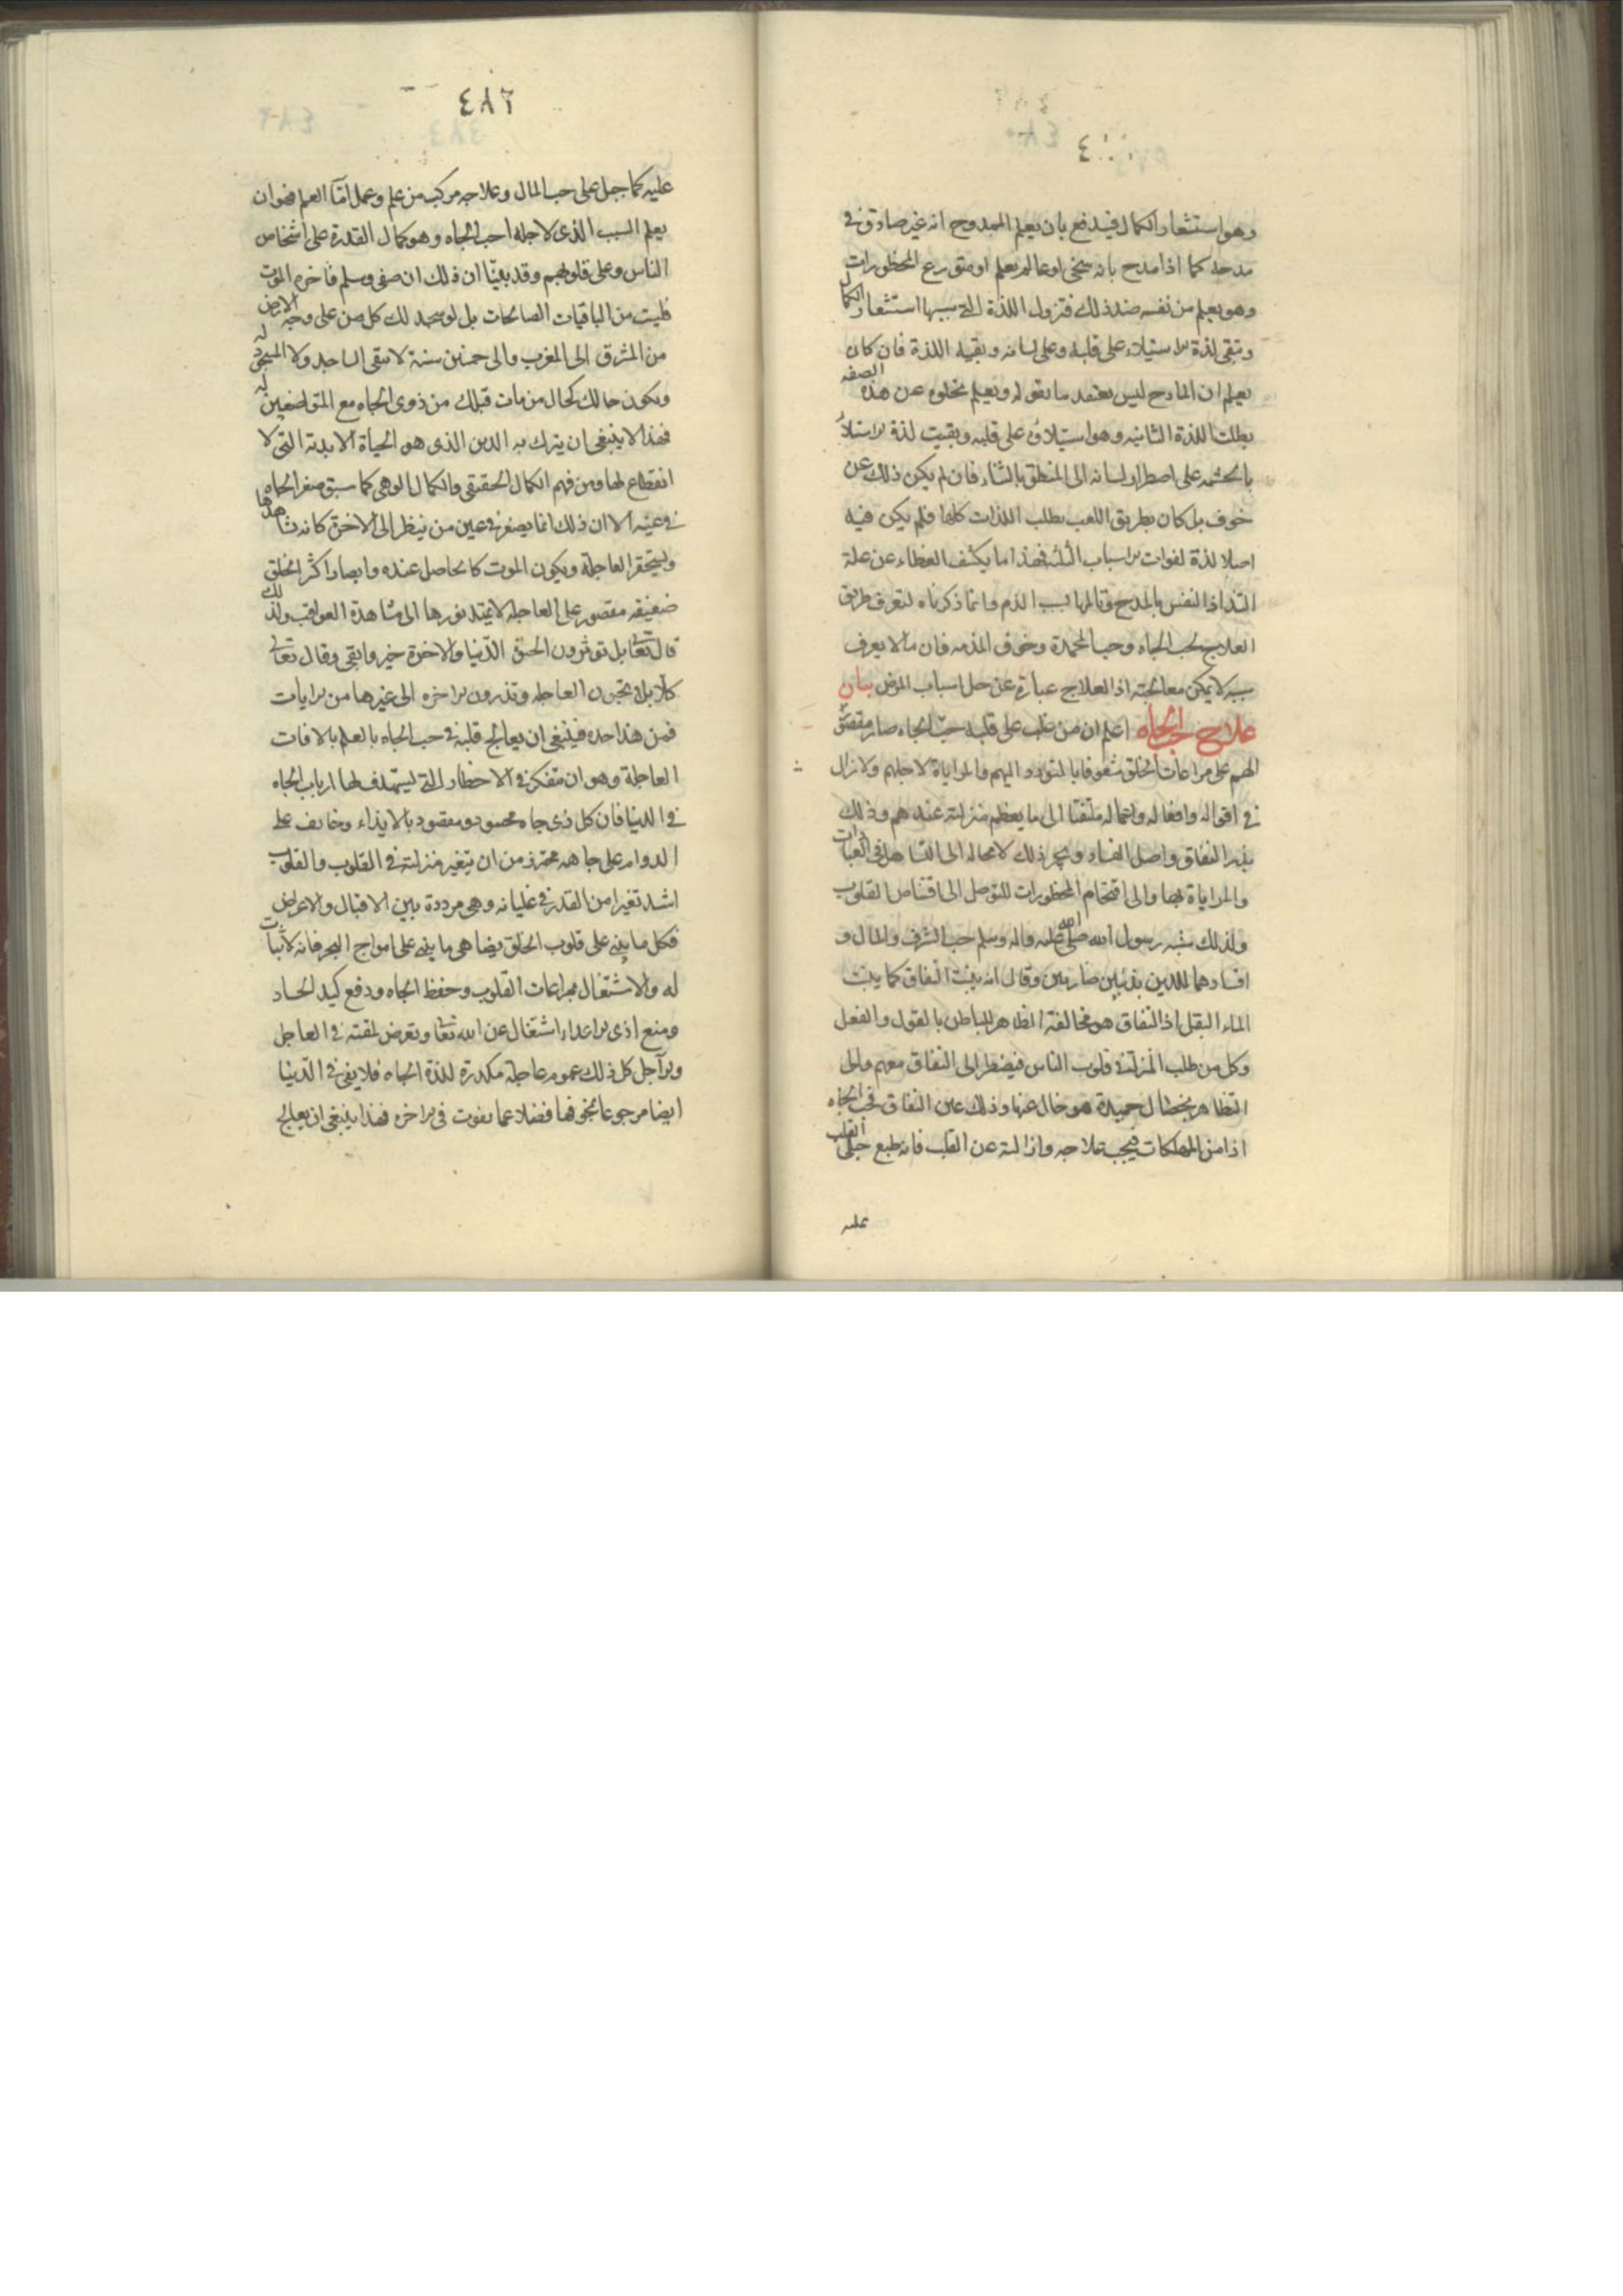 وهو استشعار الكمال فيندفع بان يعلم الممدوح انه غير صادق فى
مدحه كما اذا مدح بانه سخى او عالم بعلم او متورع عن المحظورات
وهو يعلم من نفسه ضد ذلك فتزول اللذة التى سببها استشعار الكمال
وتبقى لذة الاستيلاء على قلبه وعلى لسانه وبقية اللذة فان كان
يعلم ان المادح ليس يعتقد ما يقوله ويعلم خلوه عن هذه الصفه
بطلت اللذة الثانيه وهو استيلاؤه على قلبه وبقيت لذة الاستيلاء
بالحشمه على اضطرار لسانه الى المنطق بالثناء فان لم يكن ذلك عن
خوف بل كان بطريق اللعب بطلت اللذات كلها فلم يكن فيه
اصلا لذة لفوات الاسباب الثلثه فهذا ما يكشف الغطاء عن علة
التذاذ النفس بالمدح وتالمها بسبب الذم وانما ذكرناه لتعرف طريق
العلاج لحب الجاه وحب المحمدة وخوف المذمه فان ما لا يعرف
سببه لا يمكن معالجته اذ العلاج عبارة عن حل اسباب المرض بيان
علاج حب الجاه اعلم ان من غلب على قلبه حب الجاه صار مقصور
الهم على مراعات الخلق مشغوفا بالتودد اليهم والمراياة لاجلهم ولا يزال
فى اقواله وافعاله واعماله ملتفتا الى ما يعظم منزلته عندهم وذلك
بذر النفاق واصل الفساد ويجر ذلك لا محاله الى التساهل فى العبادات
والمراياة بها والى اقتحام المحظورات للتوصل الى اقتناص القلوب
ولذلك شبه رسول الله صلى الله عليه واله وسلم حب الشرف والمال و
افسادهما للدين بذئبين ضاريين وقال انه ينبت النفاق كما ينبت
الماء البقل اذ النفاق هو مخالفة الظاهر للباطن بالقول والفعل
وكل من طلب المنزلة فى قلوب الناس فيضطر الى النفاق معهم والى
التظاهر بخصال حميدة هو خال عنها وذلك عين النفاق فحب الجاه
اذا من المهلكات فيجب علاجه وازالته عن القلب فانه طبع جبل القلب
عليه
٤٨٦
عليه كما جبل على حب المال وعلاجه مركب من علم وعمل امّا العلم فهو ان
يعلم السبب الذى لاجله احب الجاه وهو كمال القدرة على اشخاص
الناس وعلى قلوبهم وقد بينّا ان ذلك ان صفى وسلم فاخره الموت
فليس من الباقيات الصالحات بل لو سجد لك كل من على وجه الارض
من المشرق الى المغرب والى خمسين سنة لا يبقى الساجد ولا المسجود له
ويكون حالك كحال من مات قبلك من ذوى الجاه مع المتواضعين له
فهذا لا ينبغى ان يترك به الدين الذى هو الحياة الابدية التى لا
انقطاع لها ومن فهم الكمال الحقيقى والكمال الوهمى كما سبق صغر الجاه
فى عينه الا ان ذلك انما يصغر فى عين من ينظر الى الاخرة كانه يشاهدها
ويستحقر العاجلة ويكون الموت كالحاصل عنده وابصار اكثر الخلق
ضعيفه مقصور على العاجله لا يمتد نورها الى مشاهدة العواقب ولذلك
قال تعالى بل تؤثرون الحيوة الدّنيا والاخرة خير وابقى وقال تعالى
كلا بل تحبون العاجله وتذرون الاخره الى غيرها من الايات
فمن هذا حده فينبغى ان يعالج قلبه فى حب الجاه بالعلم بالافات
العاجلة وهو ان يتفكر فى الاخطار التى يستهدف لها ارباب الجاه
فى الدنيا فان كل ذى جاه محسود ومقصود بالايذاء وخايف على
الدوام على جاهه محترز من ان يتغير منزلته فى القلوب والقلوب
اشد تغيرا من القدر فى غليانه وهى مرددة بين الاقبال والاعراض
فكل ما يبنى على قلوب الخلق يضاهى ما يبنى على امواج البحر فانه لا ثبات
له والاشتغال بمراعات القلوب وحفظ الجاه ودفع كيد الحساد
ومنع اذى الاعداء اشتغال عن الله تعالى وتعرض لمقته فى العاجل
والآجل كل ذلك غموم عاجلة مكدرة للذة الجاه فلا يفى فى الدّنيا
ايضا مرجوها بمخوفها فضلا عما يفوت فى الاخره فهذا ينبغى ان يعالج